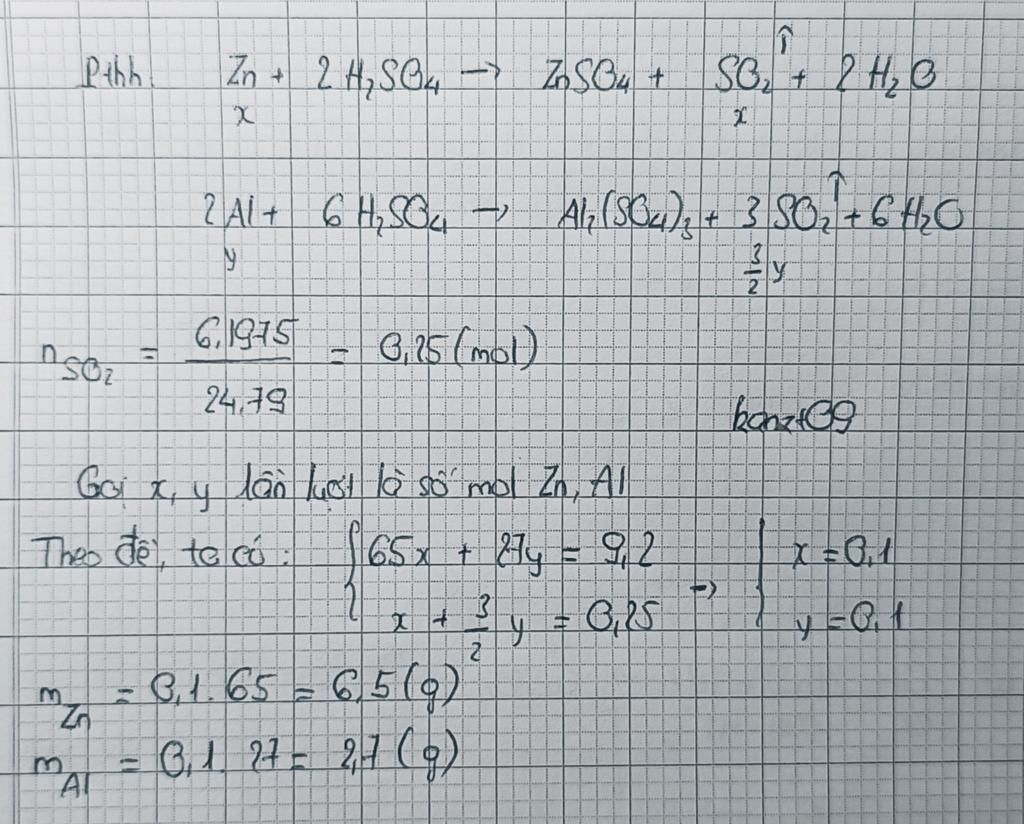 Pthh. Zn + 2 H₂SO₄ → ZnSO₄ + SO₂↑ + 2 H₂O
x x
2Al + 6 H₂SO₄ → Al₂(SO₄)₃ + 3 SO₂↑ + 6 H₂O
y 3/2 y
n SO₂ = 6,1975 / 24,79 = 0,25 (mol)
Gọi x, y lần lượt là số mol Zn, Al
Theo đề, ta có: { 65x + 27y = 9,2 → { x = 0,1
x + 3/2 y = 0,25 y = 0,1
m Zn = 0,1. 65 = 6,5 (g)
m Al = 0,1. 27 = 2,7 (g)